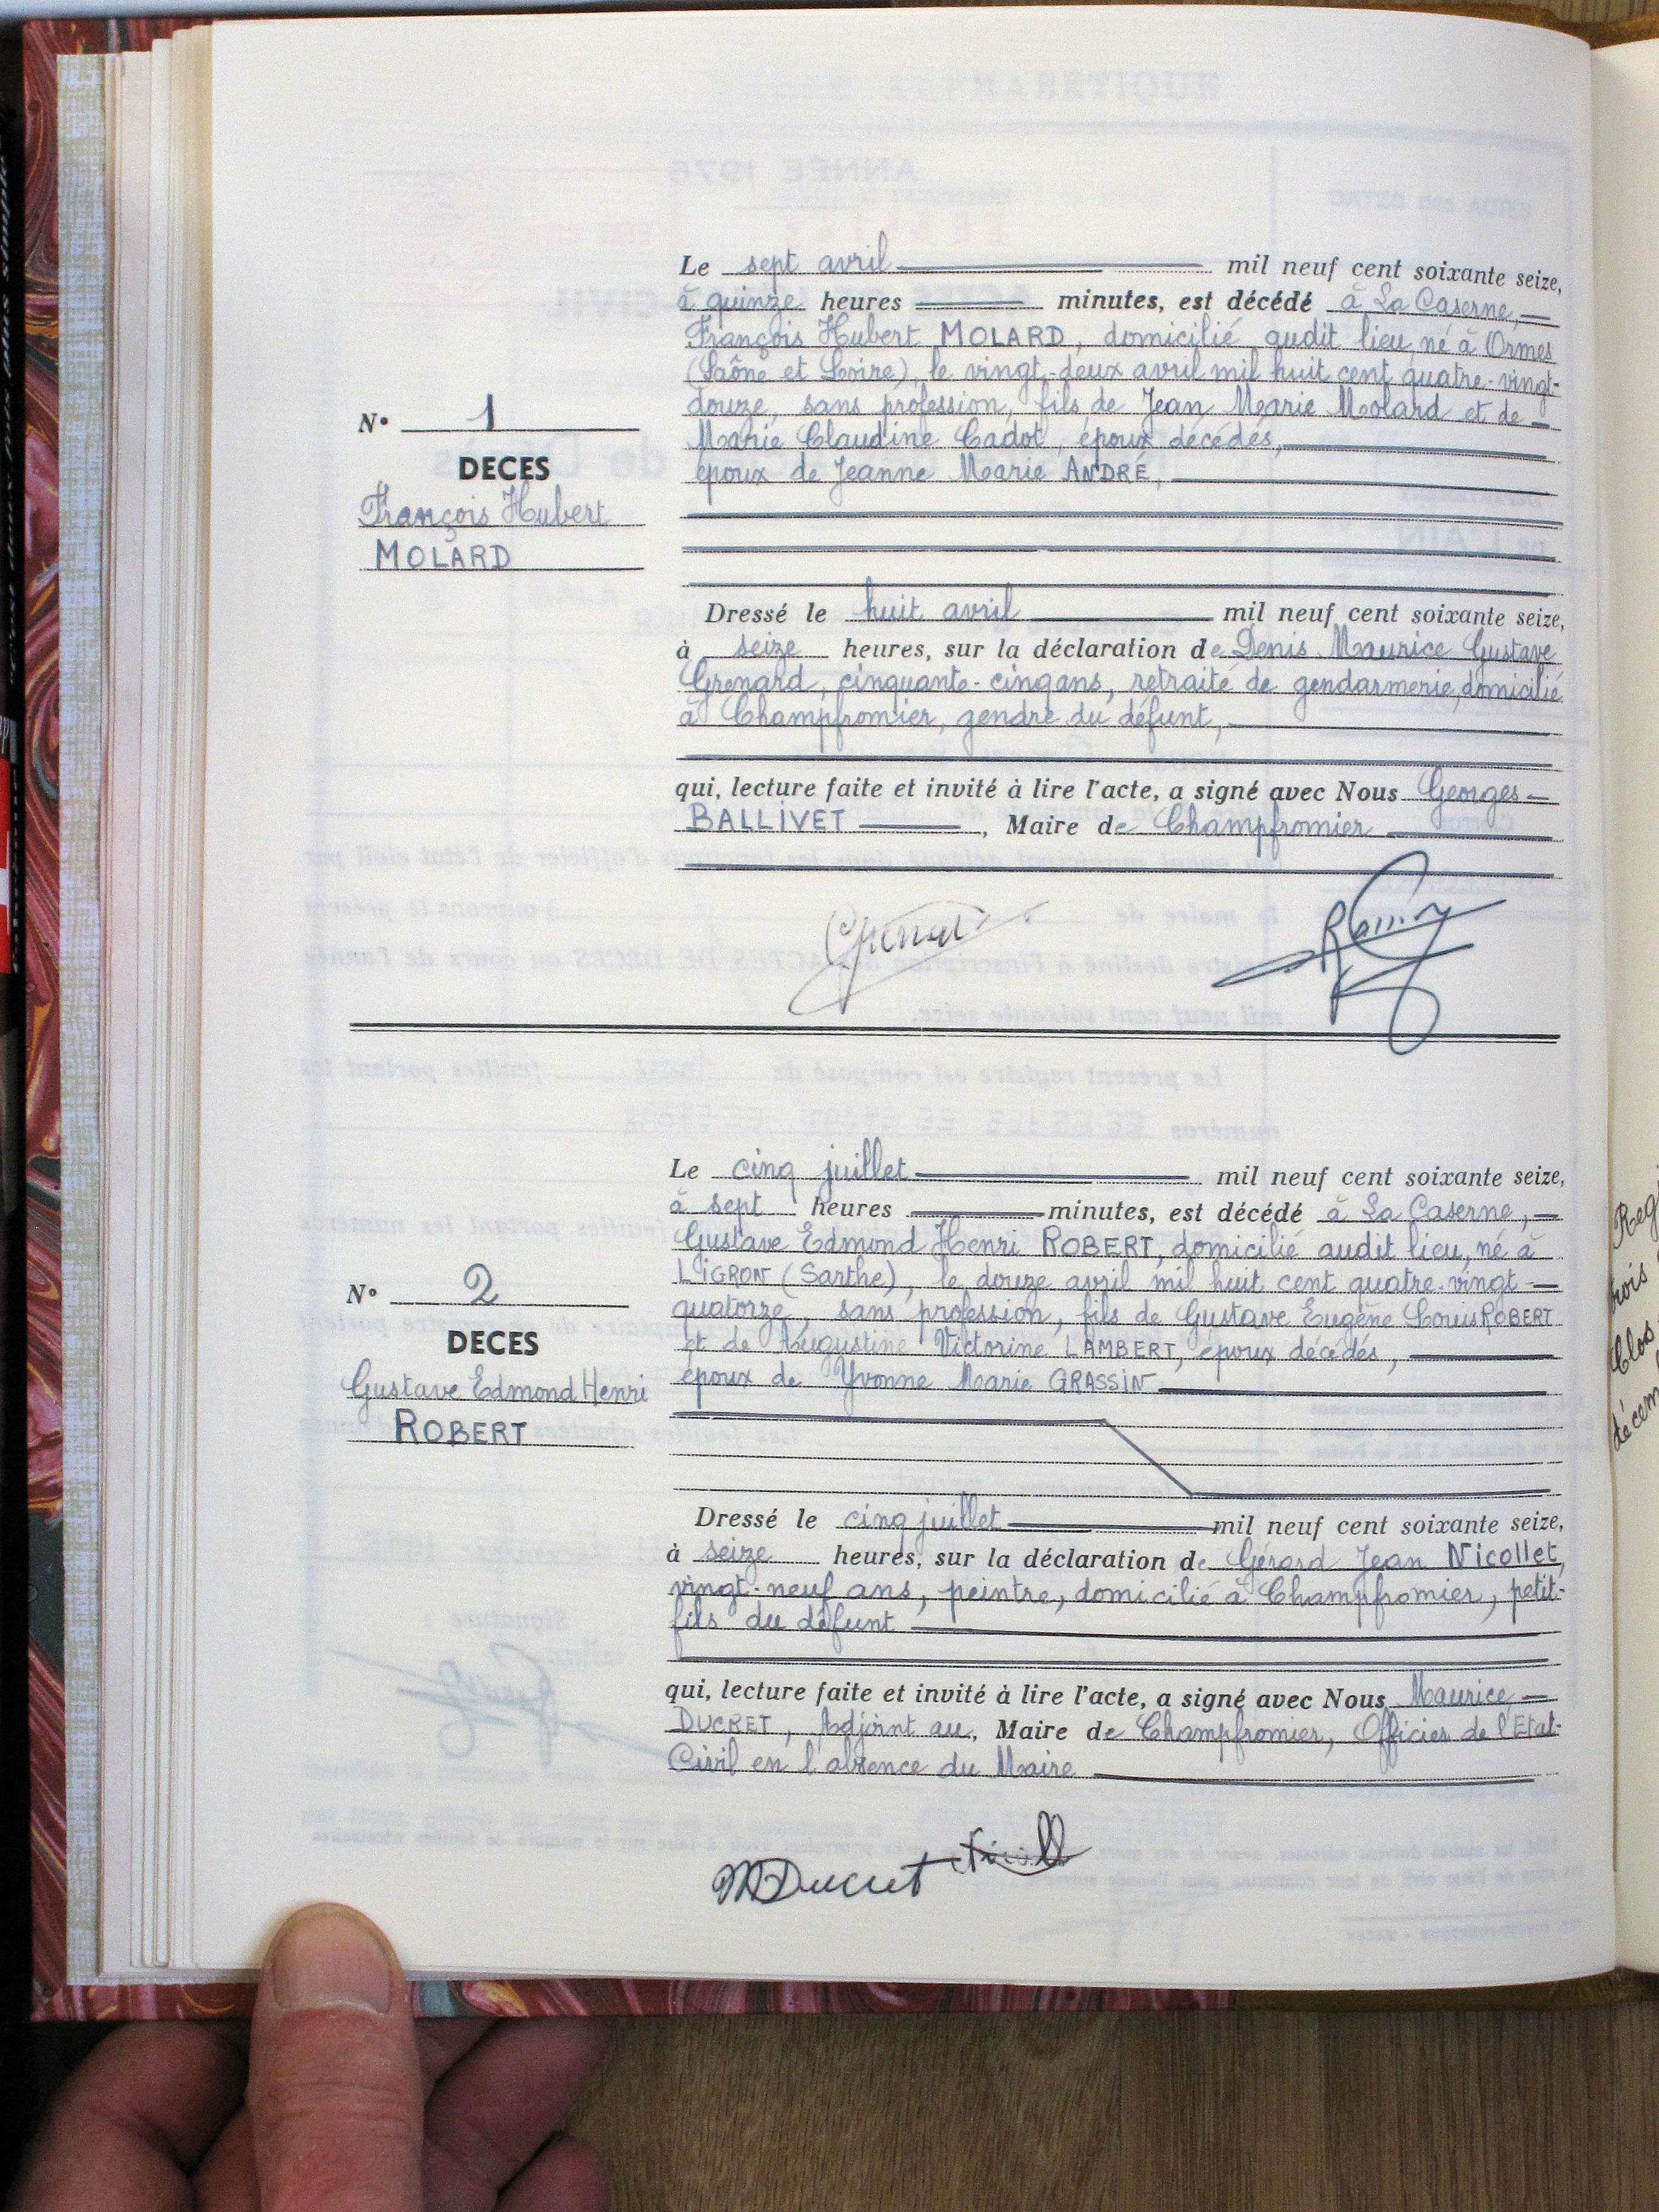 Le sept avril mil neuf cent soixante seize,
à quinze heures minutes, est décédé à La Caserne,
François Hubert MOLARD, domicilié audit lieu, né à Ormes
(Saône et Loire), le vingt-deux avril mil huit cent quatre-vingt-
douze, sans profession, fils de Jean Marie Molard et de
Marie Claudine Cadot, époux décédés,
époux de Jeanne Marie ANDRÉ,
N° 1
DECES
François Hubert
MOLARD
Dressé le huit avril mil neuf cent soixante seize,
à seize heures, sur la déclaration de Denis Maurice Gustave
Grenard, cinquante-cinq ans, retraité de gendarmerie, domicilié
à Champfromier, gendre du défunt,
qui, lecture faite et invité à lire l'acte, a signé avec Nous Georges
BALLIVET, Maire de Champfromier
Le cinq juillet mil neuf cent soixante seize,
à sept heures minutes, est décédé à La Caserne,
Gustave Edmond Henri ROBERT, domicilié audit lieu, né à
LIGRON (Sarthe), le douze avril mil huit cent quatre-vingt-
quatorze, sans profession, fils de Gustave Eugène Louis ROBERT
et de Augustine Victorine LAMBERT, époux décédés,
époux de Yvonne Marie GRASSIN
N° 2
DECES
Gustave Edmond Henri
ROBERT
Dressé le cinq juillet mil neuf cent soixante seize,
à seize heures, sur la déclaration de Gérard Jean Nicollet,
vingt-neuf ans, peintre, domicilié à Champfromier, petit-
fils du défunt
qui, lecture faite et invité à lire l'acte, a signé avec Nous Maurice
DUCRET, Adjoint au, Maire de Champfromier, Officier de l'Etat-
Civil en l'absence du Maire
MDucret